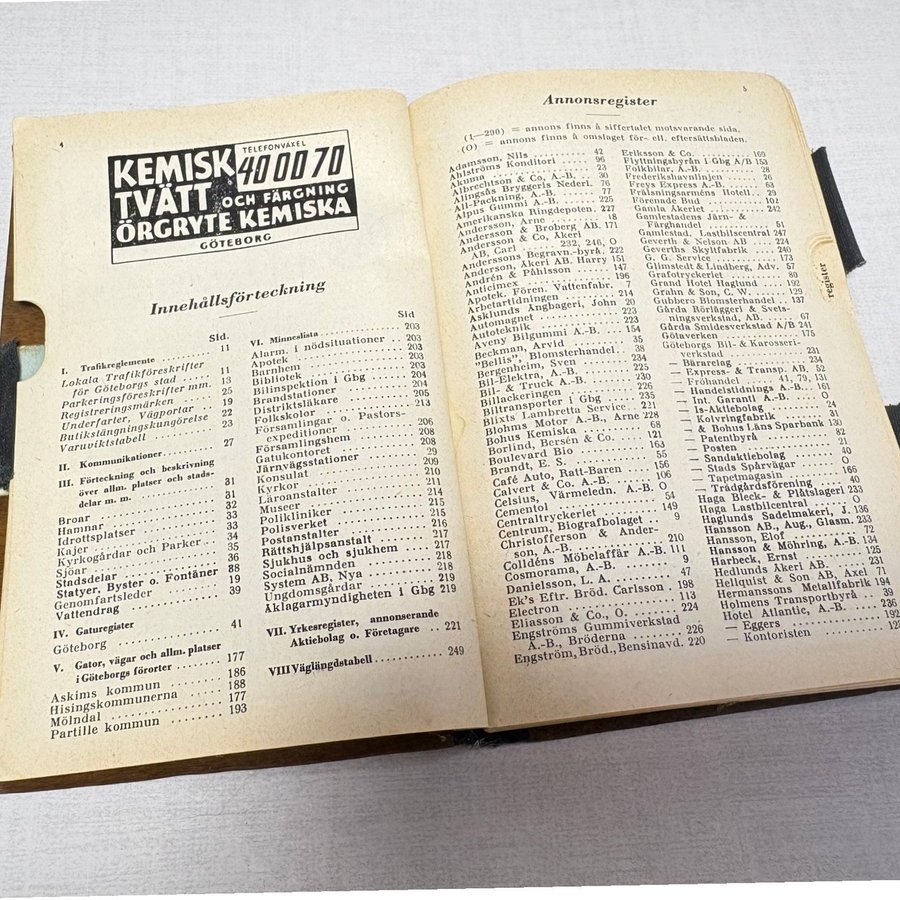 4
TELEFONVÄXEL
KEMISK 40 00 70
TVÄTT OCH FÄRGNING
ÖRGRYTE KEMISKA
GÖTEBORG
Innehållsförteckning
Sid.
I. Trafikreglemente 11
Lokala Trafikföreskrifter
för Göteborgs stad 11
Parkeringsföreskrifter mm. 13
Registreringsmärken 25
Underfarter, Vägportar 19
Butikstängningskungörelse 22
Varuviktstabell 23
II. Kommunikationer 27
III. Förteckning och beskrivning
över allm. platser och stads-
delar m. m. 31
Broar 31
Hamnar 32
Idrottsplatser 33
Kajer 33
Kyrkogårdar och Parker 34
Sjöar 35
Stadsdelar 36
Statyer, Byster o. Fontäner 38
Genomfartsleder 19
Vattendrag 39
IV. Gaturegister
Göteborg 41
V. Gator, vägar och allm. platser
i Göteborgs förorter 177
Askims kommun 186
Hisingskommunerna 188
Mölndal 177
Partille kommun 193
Sid
VI. Minneslista 203
Alarm. i nödsituationer 203
Apotek 203
Barnhem 203
Bibliotek 203
Bilinspektion i Gbg 204
Brandstationer 204
Distriktsläkare 205
Folkskolor 213
Församlingar o. Pastors-
expeditioner 206
Församlingshem 208
Gatukontoret 208
Järnvägsstationer 29
Konsulat 209
Kyrkor 210
Läroanstalter 211
Museer 214
Polikliniker 215
Polisverket 215
Postanstalter 216
Rättshjälpsanstalt 217
Sjukhus och sjukhem 217
Socialnämnden 218
System AB, Nya 218
Ungdomsgårdar 219
Åklagarmyndigheten i Gbg 219
VII. Yrkesregister, annonserande
Aktiebolag o. Företagare 221
VIII Väglängdstabell 249
5
Annonsregister
(1—290) = annons finns å siffertalet motsvarande sida.
(O) = annons finns å omslaget för- ell. eftersättsbladen.
Adamsson, Nils 42
Ahlströms Konditori 96
Akuma 23
Albrechtson & Co, A.-B. 30
Alingsås Bryggeris Nederl. 76
All-Packning, A.-B. 77
Alpus Gummi A.-B. 225
Amerikanska Ringdepoten. 227
Andersson, Arne 18
Andersson & Broberg AB. 171
Andersson & Co, Åkeri
AB, Carl 232, 246, O
Anderssons Begravn.-byrå. 222
Anderson, Åkeri AB. Harry 151
Andrén & Påhlsson 147
Anticimex 196
Apotek. Fören. Vattenfabr. 7
Arbetartidningen 214
Asklunds Ångbageri, John 20
Automagnet
Autoteknik
Aveny Bilgummi A.-B. 154
Beckman, Arvid 35
"Bellis", Blomsterhandel 38
Bergenheim, Sven 234
Bil-Elektra, A.-B. 225
Bil- & Truck A.-B. 236
Billackeringen 236
Biltransporter i Gbg 235
Blixts Lambretta Service 221
Blohms Motor A.-B., Arne 228
Bohus Kemiska 68
Borlind, Bersén & Co. 121
Boulevard Bio 163
Brandt, E. S. 55
Café Auto, Ratt-Baren 156
Calvert & Co A.-B. 106
Celsius, Värmeledn. A.-B. O
Cementol 54
Centraltryckeriet 149
Centrum, Biografbolaget 9
Christofferson & Ander-
son, A.-B. 210
Colldéns Möbelaffär A.-B. 111
Cosmorama, A.-B. 9
Danielsson, L. A. 47
Ek's Eftr. Bröd. Carlsson 198
Electron 113
Eliasson & Co., O. 224
Engströms Gummiverkstad
A.-B., Bröderna 226
Engström, Bröd., Bensinavd. 220
Eriksson & Co. 169
Flyttningsbyrån i Gbg A/B 153
Folkbilar, A.-B. 28
Frederikshavnlinjen 26
Freys Express A.-B. 63
Frälsningsarméns Hotell 29
Förenade Bud 102
Gamla Åkeriet 242
Gamlestadens Järn- &
Färghandel 51
Gamlestad, Lastbilscentral 247
Geverth & Nelson AB 224
Geverths Skyltfabrik 240
G. G. Service 173
Glimstedt & Lindberg, Adv. 57
Grafotryckeriet 80
Grand Hotel Haglund 192
Grahn & Son, C. W. 129
Gubbero Blomsterhandel 137
Gårda Rörläggeri & Svets-
ningsverkstad, AB. 67
Gårda Smidesverkstad A/B 241
Götaverken 175
Göteborgs Bil- & Karosseri-
verkstad
— Bärarelag 234
— Express- & Transp. AB. 52
— Fröhandel 41, 79, 131
— Handelstidnings A.-B. 161
— Int. Garanti A.-B. O
— Is-Aktiebolag 24
— Kolvringfabrik 31
— & Bohus Läns Sparbank 130
— Patentbyrå 82
— Posten 21
— Sandaktiebolag 40
— Stads Spårvägar O
— Tapetmagasin 166
— Trädgårdsförening 40
Haga Bleck- & Plåtslageri 233
Haga Lastbilcentral O
Haglunds Sadelmakeri, J. 136
Hansson AB., Aug., Glasm. 233
Hansson, Elof 72
Hansson & Möhring, A.-B. 134
Harbeck, Ernst 125
Hedlunds Åkeri AB. 231
Hellquist & Son AB, Axel 71
Hermanssons Metallfabrik 194
Holmens Transportbyrå 39
Hotel Atlantic, A.-B. 236
— Eggers 192
— Kontoristen
register